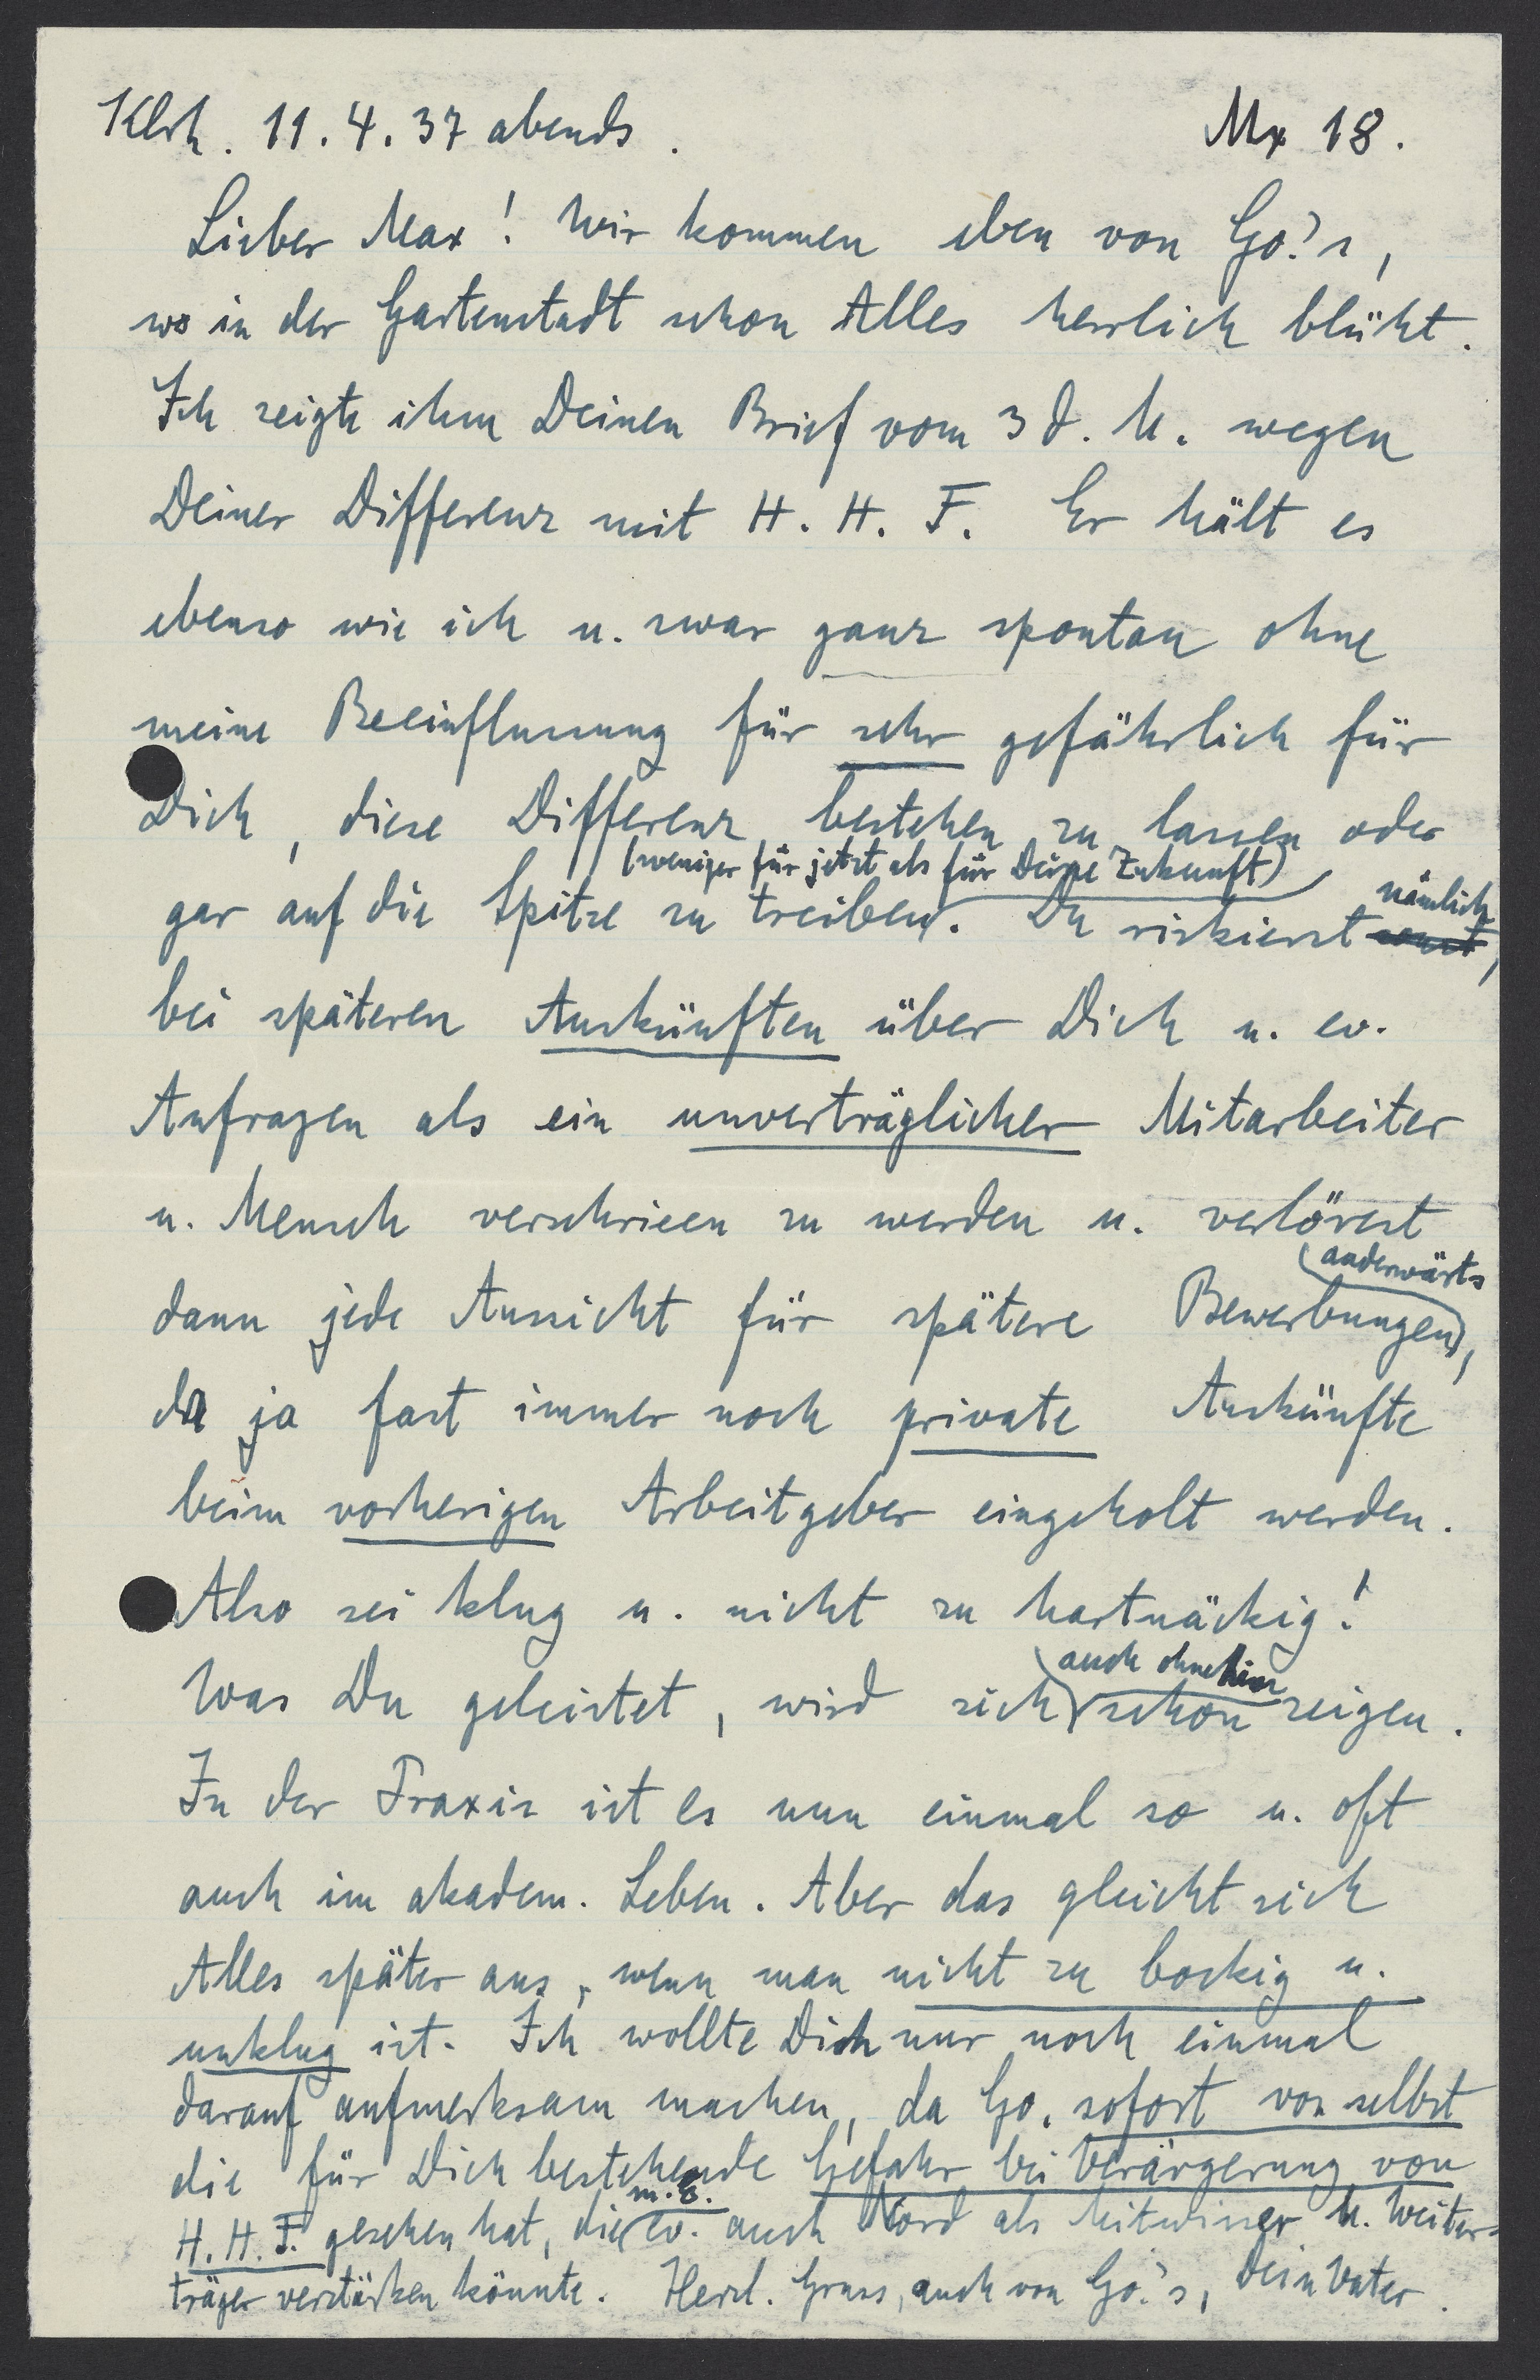 Klrh. 11.4.37 abends. Mx 18.
Lieber Max! Wir kommen eben von Go's,
wo in der Gartenstadt schon Alles herrlich blüht.
Ich zeigte ihm Deinen Brief vom 3 d. M. wegen
Deiner Differenz mit H. H. F. Er hält es
ebenso wie ich u. zwar ganz spontan ohne
meine Beeinflussung für sehr gefährlich für
Dich, diese Differenz bestehen zu lassen oder
(weniger für jetzt als für Deine Zukunft)
gar auf die Spitze zu treiben. Du riskierst sonst nämlich,
bei späteren Auskünften über Dich u. ev.
Anfragen als ein unverträglicher Mitarbeiter
u. Mensch verschrieen zu werden u. verlörest
anderwärts
dann jede Aussicht für spätere Bewerbungen,
da ja fast immer noch private Auskünfte
beim vorherigen Arbeitgeber eingeholt werden.
Also sei klug u. nicht zu hartnäckig!
auch ohnehin
Was Du geleistet, wird sich schon zeigen.
In der Praxis ist es nun einmal so u. oft
auch im akadem. Leben. Aber das gleicht sich
Alles später aus, wenn man nicht zu bockig u.
unklug ist. Ich wollte Dich nur noch einmal
darauf aufmerksam machen, da Go. sofort von selbst
die für Dich bestehende Gefahr bei Verärgerung von
m. E.
H. H. F. gesehen hat, die ev. auch Nord als Mitwisser u. Weiter-
träger verstärken könnte. Herzl. Gruss, auch von Go's, Dein Vater.